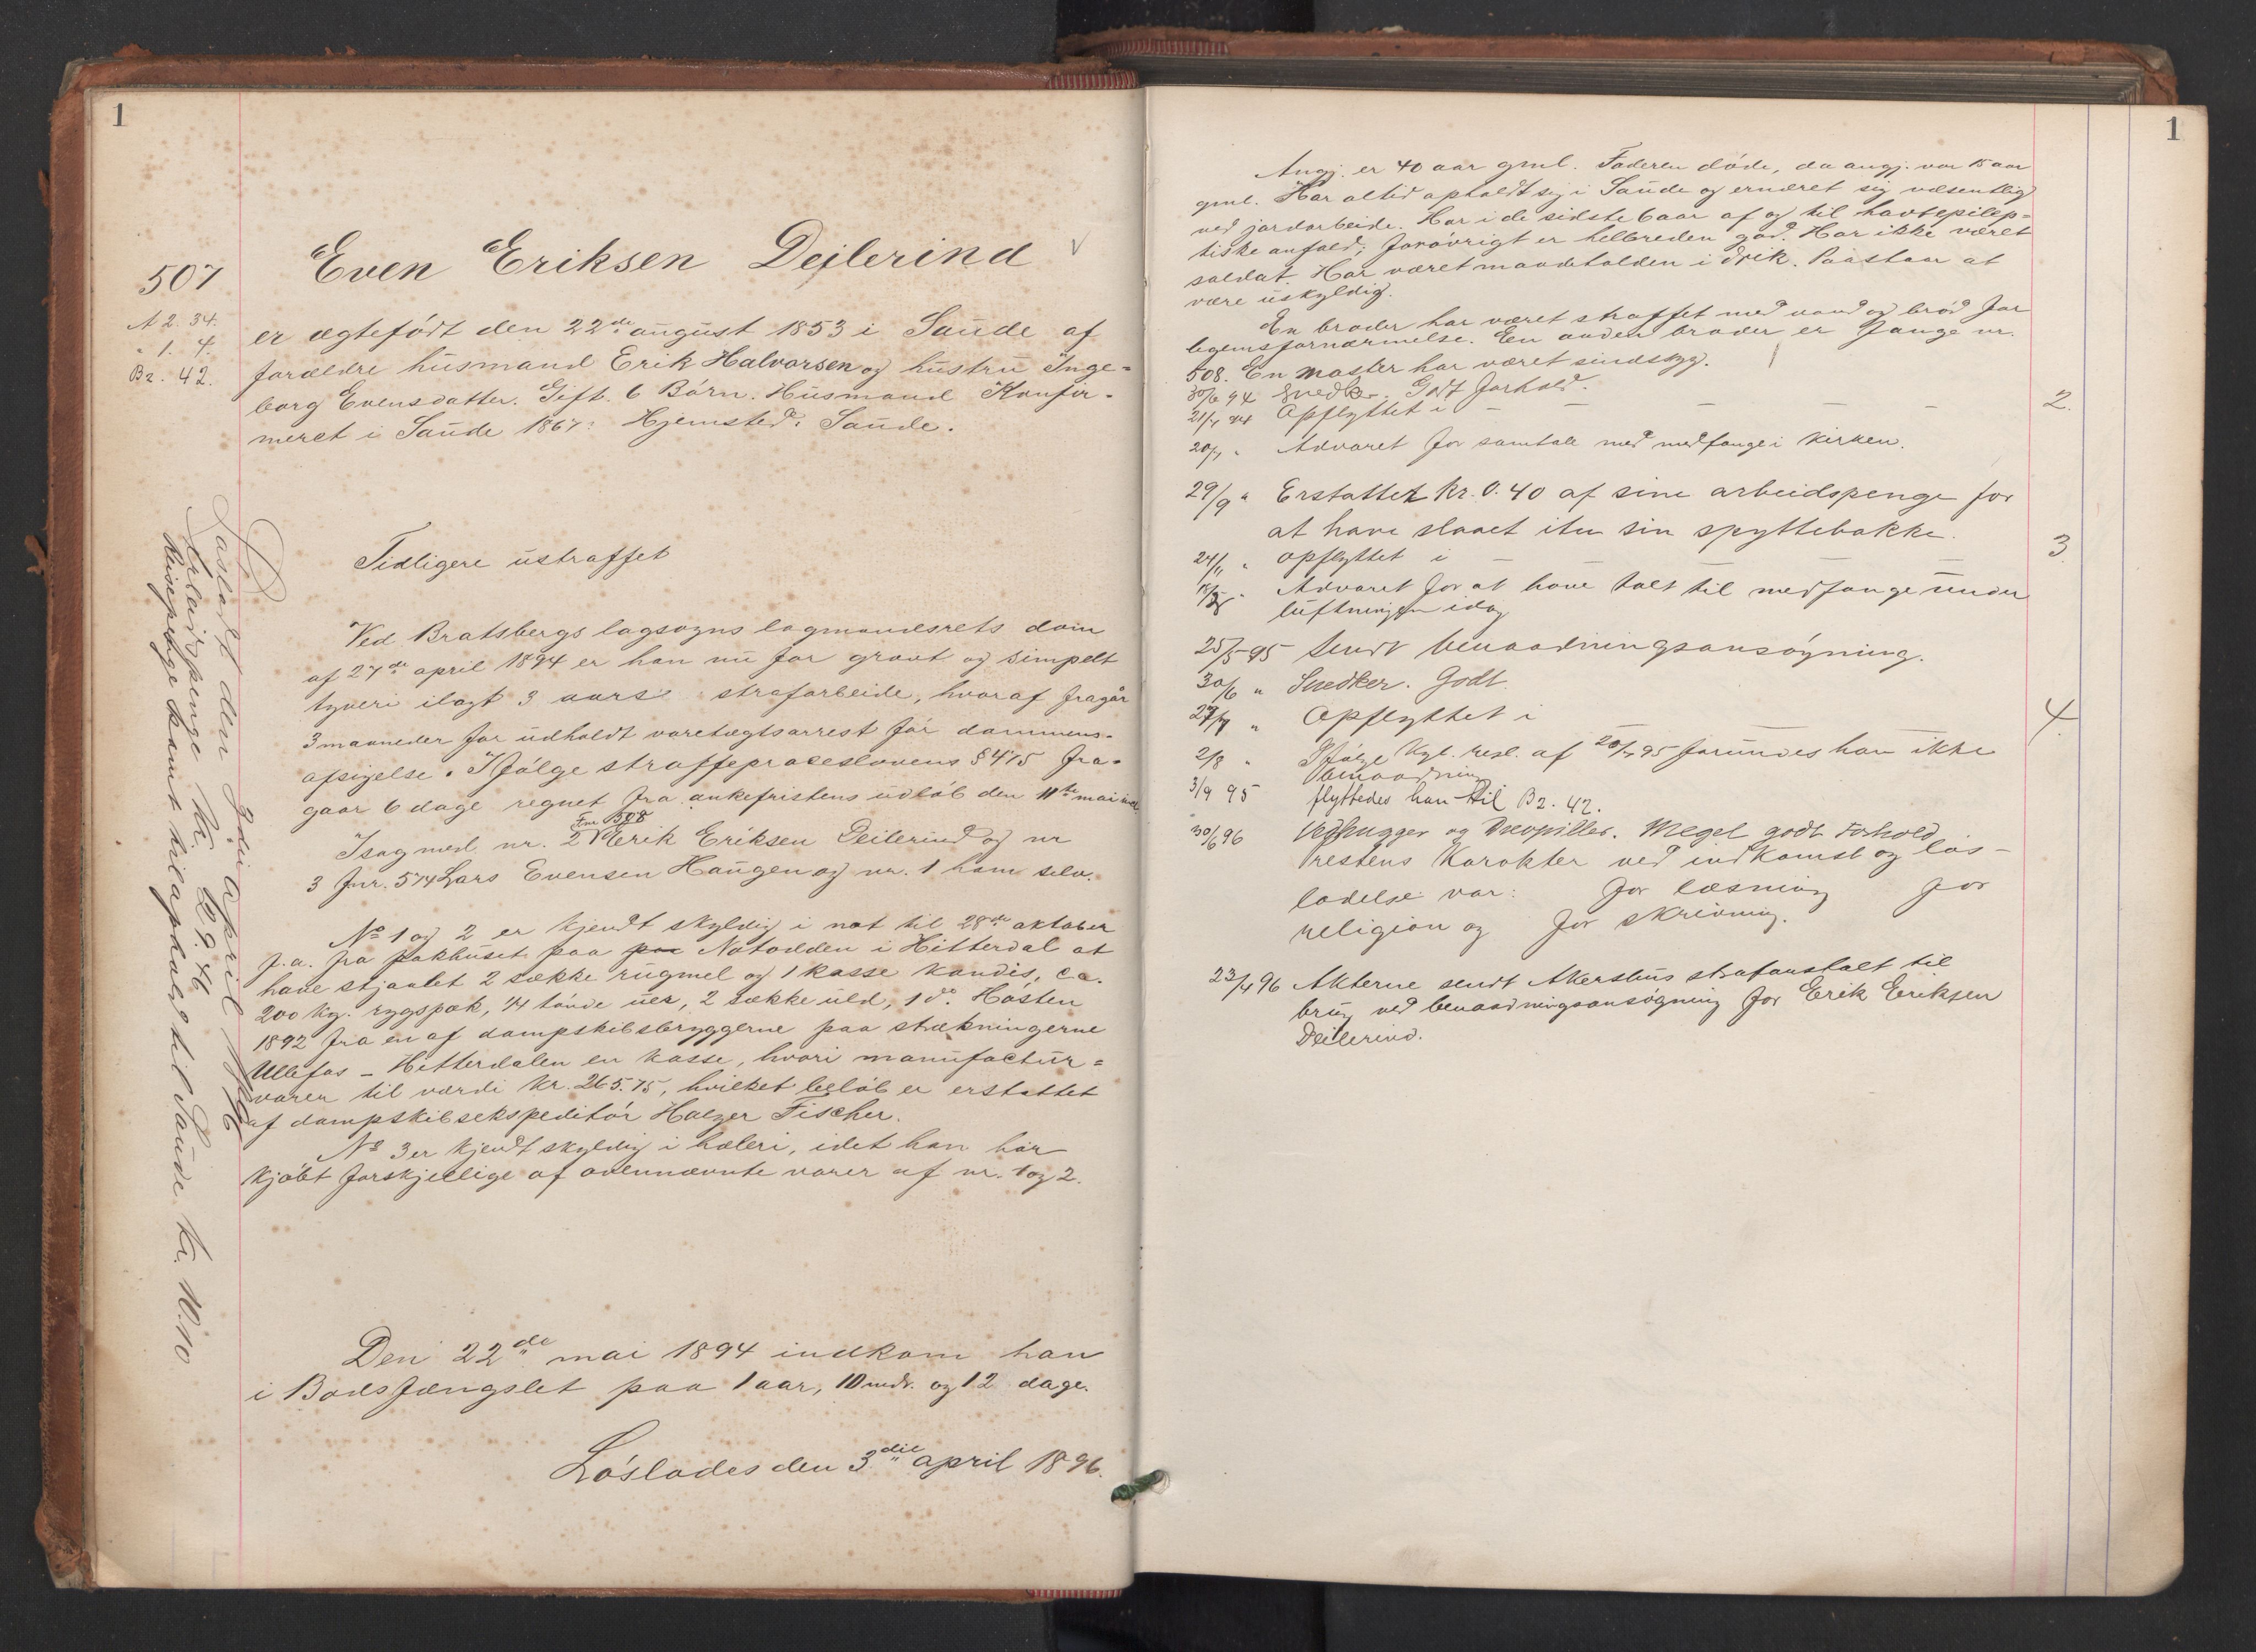 1
507
A 2. 34.
" 1. 4.
B 2. 42.
Even Eriksen Dejlerind
er ægtefødt den 22de august 1853 i Saude af
forældre husmand Erik Halvorsen og hustru Inge=
borg Evensdatter. Gift. 6 Børn. Husmand Konfir-
meret i Saude 1867. Hjemsted: Saude.
Tidligere ustraffet
Ved Bratsbergs lagsogns lagmandsrets dom
af 27de april 1894 er han nu for grovt og simpelt
tyveri ilagt 3 aars strafarbeide, hvoraf fragår
3 maaneder for udholdt varetægtsarrest før dommens-
afsigelse. Ifølge straffeproceslovens § 475 fra-
gaar 6 dage regnet fra ankefristens udløb den 11te mai incl.
Fnr 508
I sag med nr. 2 Erik Eriksen Deilerind og nr
3 fnr. 574 Lars Evensen Haugen og nr. 1 ham selv.
No 1 og 2 er kjendt skyldig i nat til 28de oktober
f.a. fra pakhuset paa paa Notodden i Hitterdal at
have stjaalet 2 sække rugmel og 1 kasse kandis, ca.
200 kg. rygspæk, 1/4 tønde uer, 2 sække uld, 1 do. Høsten
1892 fra en af dampskibsbryggerne paa strækningerne
Ulefos - Hitterdalen en kasse, hvori manufactur=
varer til værdi kr. 265.75, hvilket beløb er erstattet
af dampskibsekspeditør Halzer Fischer.
No 3 er kjendt skyldig i hæleri, idet han har
kjøbt forskjellige af ovennævnte varer af nr. 1 og 2.
Den 22de mai 1894 indkom han
i Bodsfængslet paa 1 aar, 10 mdr. og 12 dage.
Løslades den 3die april 1896.
Løsladt den 3die April 1896
Arbeidspenge kr. 29.46
Reisepenge samt tilophold til Saude kr. 10.10
1
Angj. er 40 aar gml. Faderen døde, da angj. var 15 aar
gml. Har altid opholdt sig i Saude og ernæret sig væsentlig
ved jordarbeide. Har i de sidste 6 aar af og til havt epilep=
tiske anfald; forøvrigt er helbreden god. Har ikke været
soldat. Har været maadeholden i drik. Paastaar at
være uskyldig.
En broder har været straffet med vand og brød for
legemsfornærmelse. En anden broder er fange nr.
508. En moster har været sindssyg.
30/6 94 Snedker. Godt forhold.
21/7 94 Opflyttet i - - - - - 2.
20/9 " Advaret for samtale med medfange i kirken.
29/9 " Erstattet kr. 0.40 af sine arbeidspenge for
at have slaaet itu sin spyttebakke.
24/11 " opflyttet i - - - - 3.
Advaret for at have talt til medfange under
luftningen idag
25/5 95 Sendt benaadningsansøgning.
30/6 " Snedker. Godt.
27/7 " Opflyttet i - - - 4.
2/8 " Ifølge kgl. resl. af 20/7 95 forundes han ikke
benaadning
3/9 95 flyttedes han til B 2. 42.
30/6 96 Vedhugger og Drevpiller. Meget godt Forhold
Prestens Karakter ved indkomst og løs-
ladelse var: for læsning for
religion og for skrivning.
23/4 96 Akterne sendt Akershus strafanstalt til
brug ved benaadningsansøgning for Erik Eriksen
Deilerind.